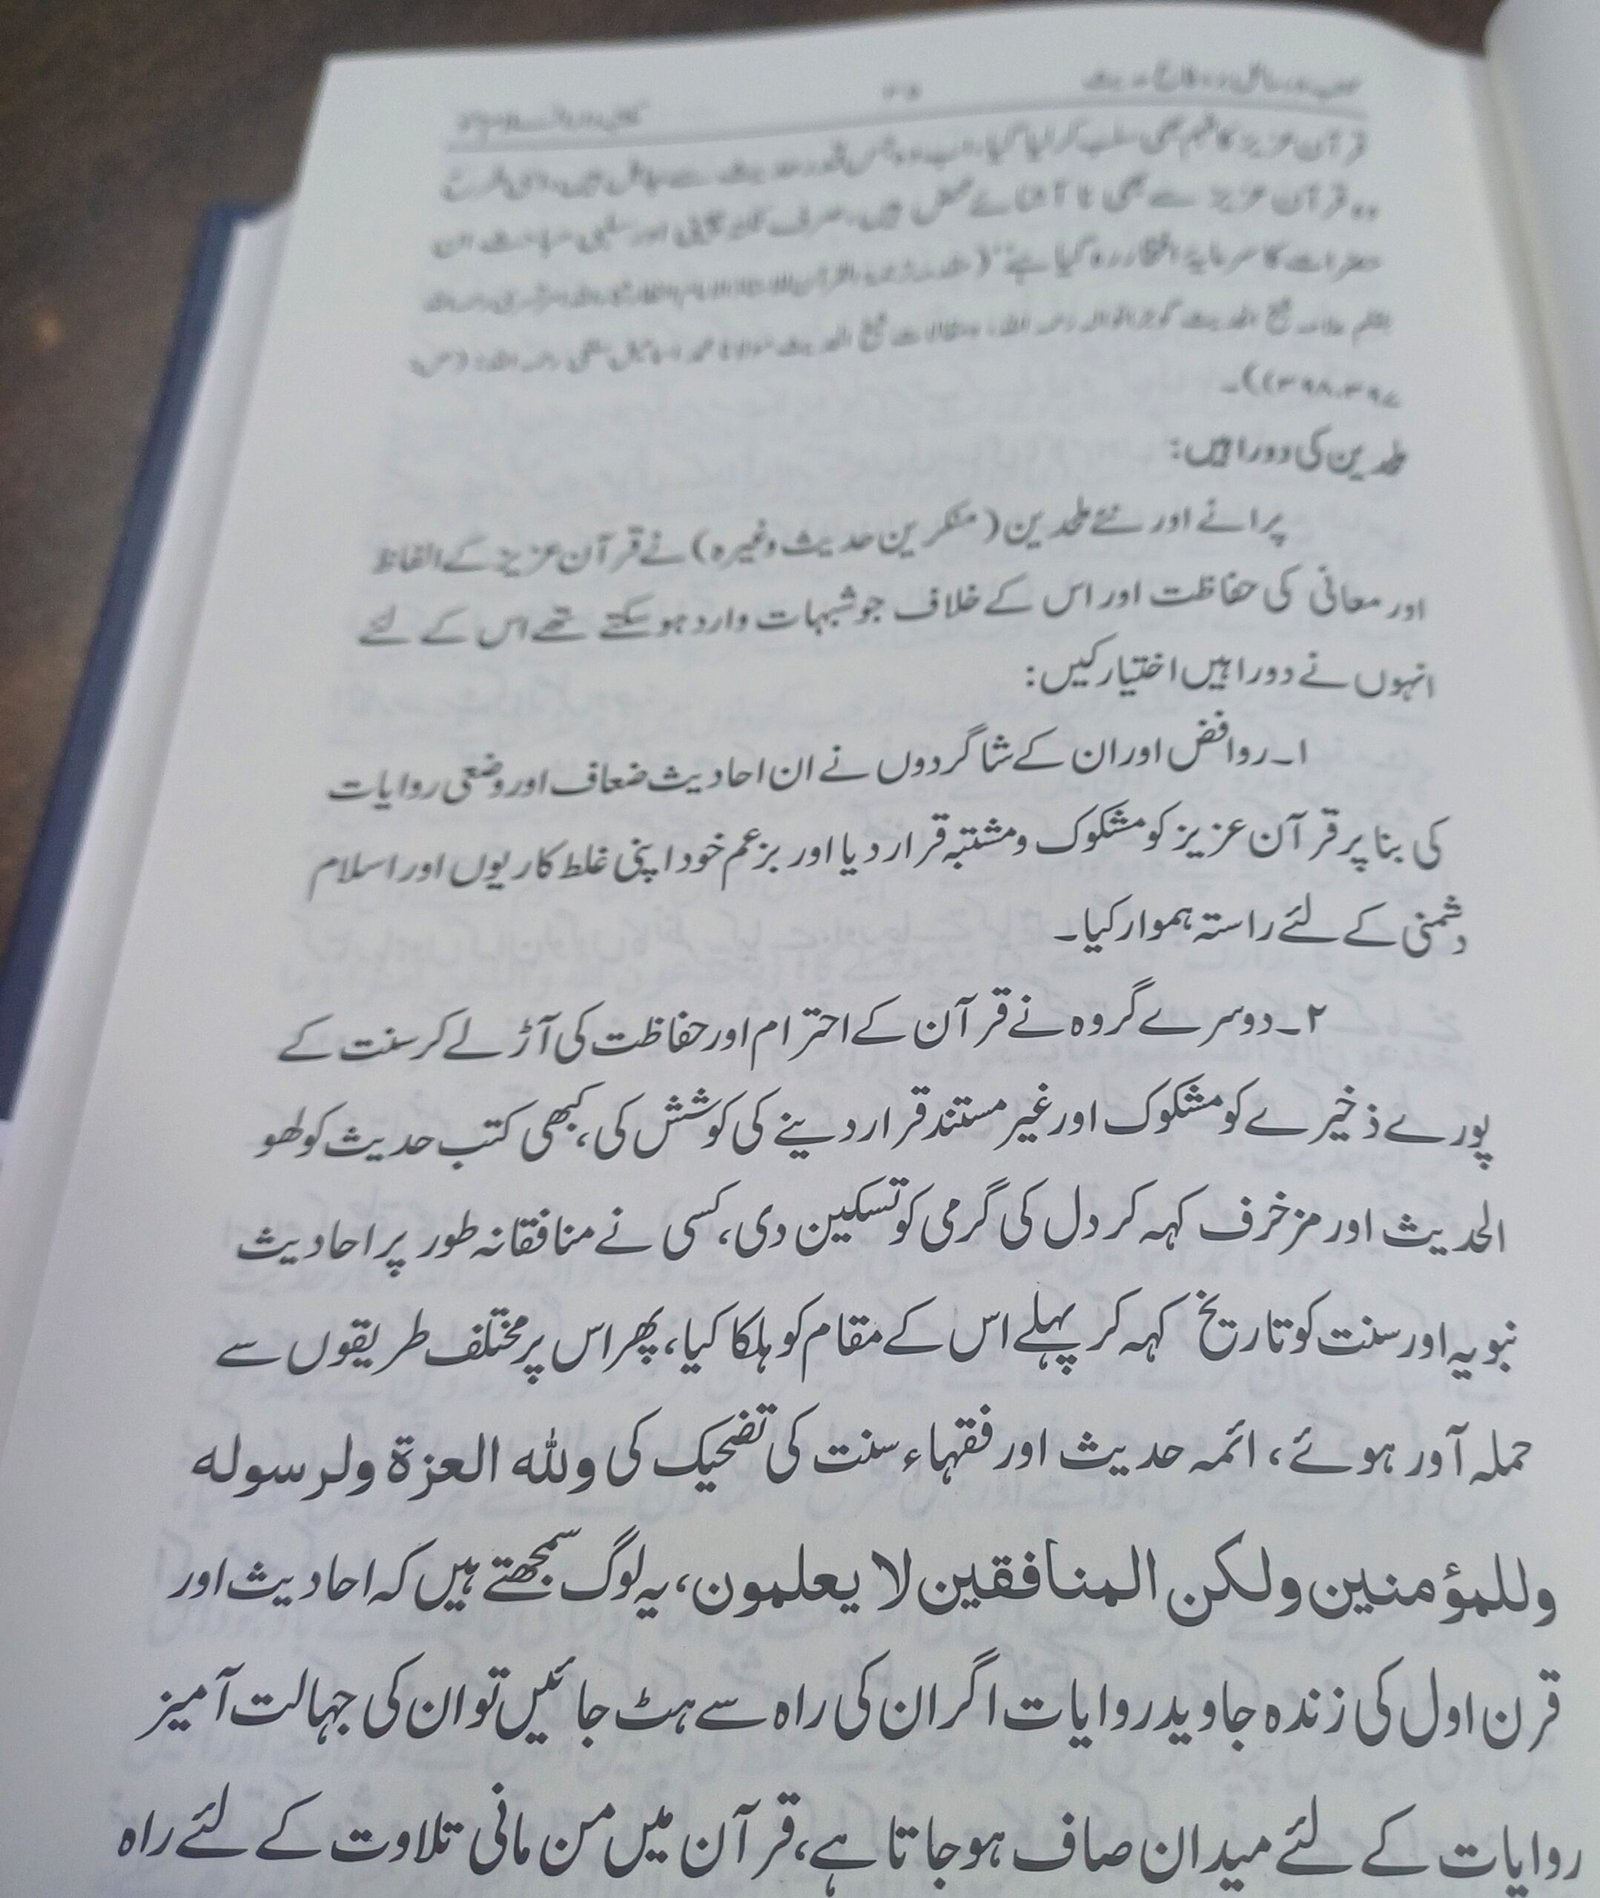 قرآن عزیز کا فہم بھی سلب کر لیا گیا، اب وہ جس قدر حدیث سے جاہل ہیں، اسی طرح
وہ قرآن عزیز سے بھی نا آشنائے محض ہیں، صرف اور
حضرات کا سرمایۂ افتخار رہ گیا ہے" (
شیخ الحدیث گوجرانوالہ رحمہ اللہ، مقالات شیخ الحدیث مولانا محمد اسماعیل سلفی رحمہ اللہ: (ص:
۳۹۷، ۳۹۸))۔
ملحدین کی دو راہیں:
پرانے اور نئے ملحدین (منکرین حدیث وغیرہ) نے قرآن عزیز کے الفاظ
اور معانی کی حفاظت اور اس کے خلاف جو شبہات وارد ہو سکتے تھے اس کے لئے
انہوں نے دو راہیں اختیار کیں:
۱۔ روافض اور ان کے شاگردوں نے ان احادیث ضعاف اور وضعی روایات
کی بنا پر قرآن عزیز کو مشکوک و مشتبہ قرار دیا اور بزعم خود اپنی غلط کاریوں اور اسلام
دشمنی کے لئے راستہ ہموار کیا۔
۲۔ دوسرے گروہ نے قرآن کے احترام اور حفاظت کی آڑ لے کر سنت کے
پورے ذخیرے کو مشکوک اور غیر مستند قرار دینے کی کوشش کی، کبھی کتب حدیث کو لھو
الحدیث اور مزخرف کہہ کر دل کی گرمی کو تسکین دی، کسی نے منافقانہ طور پر احادیث
نبویہ اور سنت کو تاریخ کہہ کر پہلے اس کے مقام کو ہلکا کیا، پھر اس پر مختلف طریقوں سے
حملہ آور ہوئے، ائمہ حدیث اور فقہاء سنت کی تضحیک کی ولله العزة ولرسوله
وللمؤمنین ولكن المنافقین لا یعلمون، یہ لوگ سمجھتے ہیں کہ احادیث اور
قرن اول کی زندہ جاوید روایات اگر ان کی راہ سے ہٹ جائیں تو ان کی جہالت آمیز
روایات کے لئے میدان صاف ہو جاتا ہے، قرآن میں من مانی تلاوت کے لئے راہ